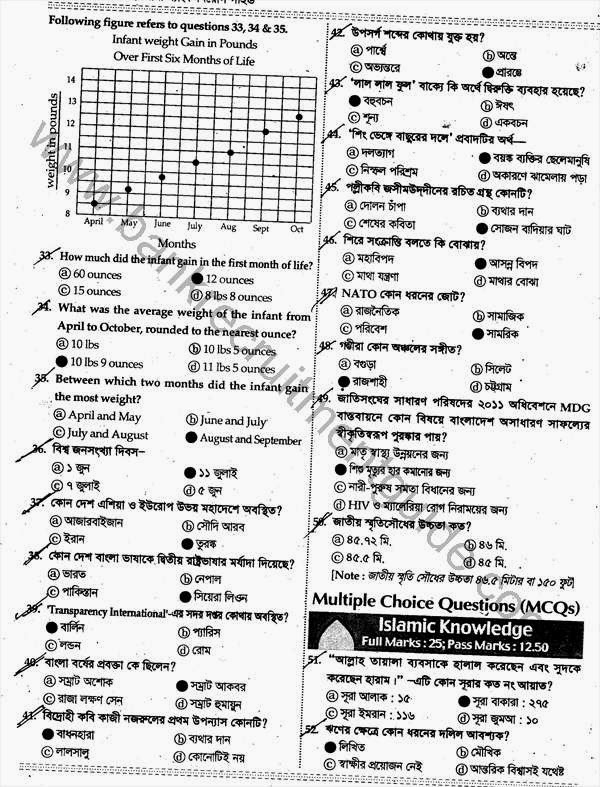 Following figure refers to questions 33, 34 & 35.
Infant weight Gain in Pounds
Over First Six Months of Life
weight in pounds
14
13
12
11
10
9
8
April May June July Aug Sept Oct
Months
33. How much did the infant gain in the first month of life?
ⓐ 60 ounces ● 12 ounces
ⓒ 15 ounces ⓓ 8 lbs 8 ounces
34. What was the average weight of the infant from
April to October, rounded to the nearest ounce?
ⓐ 10 lbs ⓑ 10 lbs 5 ounces
● 10 lbs 9 ounces ⓓ 11 lbs 5 ounces
35. Between which two months did the infant gain
the most weight?
ⓐ April and May ⓑ June and July
ⓒ July and August ● August and September
36. বিশ্ব জনসংখ্যা দিবস–
ⓐ ১ জুন ● ১১ জুলাই
ⓒ ৭ জুলাই ⓓ ৫ জুন
37. কোন দেশ এশিয়া ও ইউরোপ উভয় মহাদেশে অবস্থিত?
ⓐ আজারবাইজান ⓑ সৌদি আরব
ⓒ ইরান ● তুরস্ক
38. কোন দেশ বাংলা ভাষাকে দ্বিতীয় রাষ্ট্রভাষার মর্যাদা দিয়েছে?
ⓐ ভারত ⓑ নেপাল
ⓒ পাকিস্তান ● সিয়েরা লিওন
39. 'Transparency International'-এর সদর দপ্তর কোথায় অবস্থিত?
● বার্লিন ⓑ প্যারিস
ⓒ লন্ডন ⓓ রোম
40. বাংলা বর্ষের প্রবক্তা কে ছিলেন?
ⓐ সম্রাট অশোক ● সম্রাট আকবর
ⓒ রাজা লক্ষণ সেন ⓓ সম্রাট হুমায়ুন
41. বিদ্রোহী কবি কাজী নজরুলের প্রথম উপন্যাস কোনটি?
● বাধনহারা ⓑ ব্যথার দান
ⓒ লালসালু ⓓ কোনোটিই নয়
42. উপসর্গ শব্দের কোথায় যুক্ত হয়?
ⓐ পার্শ্বে ⓑ অন্তে
ⓒ অভ্যন্তরে ● প্রারম্ভে
43. 'লাল লাল ফুল' বাক্যে কি অর্থে দ্বিরুক্তি ব্যবহার হয়েছে?
● বহুবচন ⓑ ঈষৎ
ⓒ শূন্য ⓓ একবচন
44. 'শিং ভেঙ্গে বাছুরের দলে' প্রবাদটির অর্থ—
ⓐ দলত্যাগ ● বয়স্ক ব্যক্তির ছেলেমানুষি
ⓒ নিস্ফল পরিশ্রম ⓓ অকারণে ঝামেলায় পড়া
45. পল্লীকবি জসীমউদ্দীনের রচিত গ্রন্থ কোনটি?
ⓐ দোলন চাঁপা ⓑ ব্যথার দান
ⓒ শেষের কবিতা ● সোজন বাদিয়ার ঘাট
46. শিরে সংক্রান্তি বলতে কি বোঝায়?
ⓐ মহাবিপদ ● আসন্ন বিপদ
ⓒ মাথা যন্ত্রণা ⓓ মাথার বোঝা
47. NATO কোন ধরনের জোট?
ⓐ রাজনৈতিক ⓑ সামাজিক
ⓒ পরিবেশ ● সামরিক
48. গম্ভীরা কোন অঞ্চলের সঙ্গীত?
ⓐ বগুড়া ⓑ সিলেট
● রাজশাহী ⓓ চট্টগ্রাম
49. জাতিসংঘের সাধারণ পরিষদের ২০১১ অধিবেশনে MDG
বাস্তবায়নে কোন বিষয়ে বাংলাদেশ অসাধারণ সাফল্যের
স্বীকৃতিস্বরূপ পুরস্কার পায়?
ⓐ মাতৃ স্বাস্থ্য উন্নয়নের জন্য
● শিশু মৃত্যুর হার কমানোর জন্য
ⓒ নারী-পুরুষ সমতা বিধানের জন্য
ⓓ HIV ও ম্যালেরিয়া রোগ নিরাময়ের জন্য
50. জাতীয় স্মৃতিসৌধের উচ্চতা কত?
ⓐ ৪৫.৭২ মি. ⓑ ৪৬ মি.
ⓒ ৪৫.৫ মি. ⓓ ৪৫ মি.
[Note : জাতীয় স্মৃতি সৌধের উচ্চতা ৪৬.৫ মিটার বা ১৫০ ফুট]
Multiple Choice Questions (MCQs)
Islamic Knowledge
Full Marks : 25; Pass Marks : 12.50
51. "আল্লাহ তায়ালা ব্যবসাকে হালাল করেছেন এবং সুদকে
করেছেন হারাম।" –এটি কোন সূরার কত নং আয়াত?
ⓐ সূরা আলাক : ১৫ ● সূরা বাকারা : ২৭৫
ⓒ সূরা ইমরান : ১১৬ ⓓ সূরা জুমআ : ১০
52. ঋণের ক্ষেত্রে কোন ধরনের দলিল আবশ্যক?
● লিখিত ⓑ মৌখিক
ⓒ স্বাক্ষীর প্রয়োজন নেই ⓓ আন্তরিক বিশ্বাসই যথেষ্ট
www.bankrecruitmentguide.com